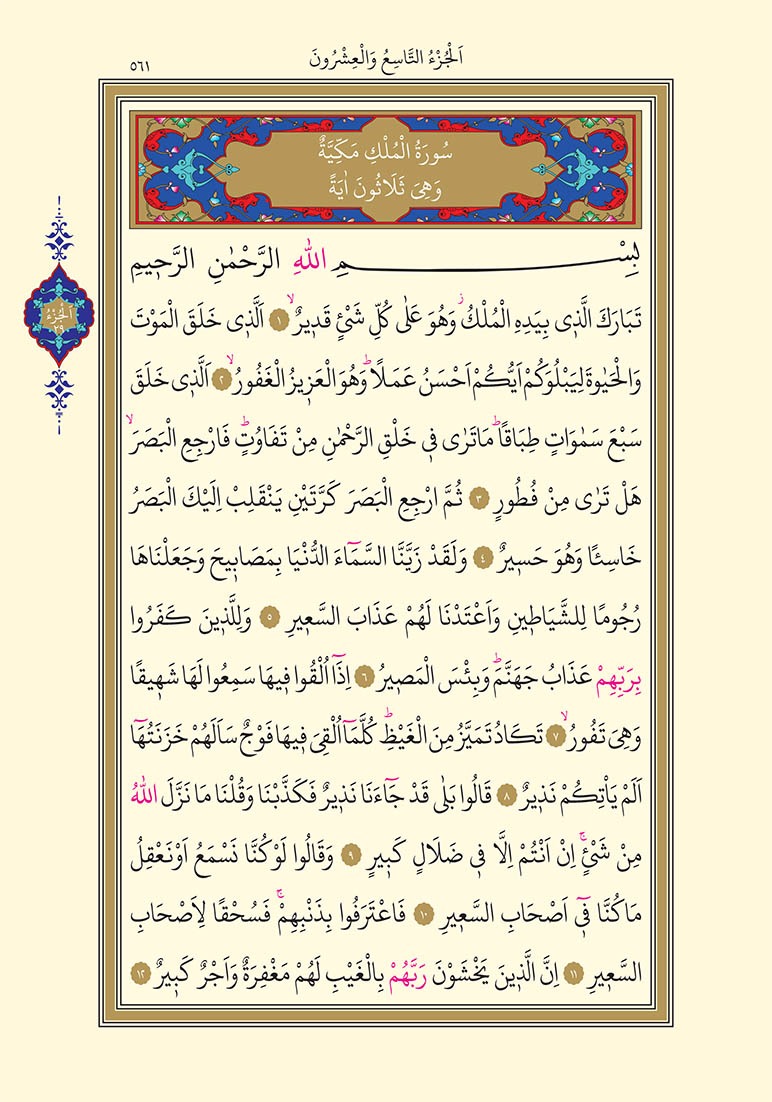 اَلْجُزْءُ التَّاسِعُ وَالْعِشْرُونَ
٥٦١
سُورَةُ الْمُلْكِ مَكِّيَّةٌ
وَهِىَ ثَلَاثُونَ اٰيَةً
اَلْجُزْءُ
٢٩
بِسْمِ اللّٰهِ الرَّحْمٰنِ الرَّح۪يمِ
تَبَارَكَ الَّذ۪ى بِيَدِهِ الْمُلْكُۘ وَهُوَ عَلٰى كُلِّ شَىْءٍ قَد۪يرٌۙ ﴿١﴾ اَلَّذ۪ى خَلَقَ الْمَوْتَ
وَالْحَيٰوةَ لِيَبْلُوَكُمْ اَيُّكُمْ اَحْسَنُ عَمَلًاۜ وَهُوَ الْعَز۪يزُ الْغَفُورُۙ ﴿٢﴾ اَلَّذ۪ى خَلَقَ
سَبْعَ سَمٰوَاتٍ طِبَاقًاۜ مَاتَرٰى ف۪ى خَلْقِ الرَّحْمٰنِ مِنْ تَفَاوُتٍۜ فَارْجِعِ الْبَصَرَۙ
هَلْ تَرٰى مِنْ فُطُورٍ ﴿٣﴾ ثُمَّ ارْجِعِ الْبَصَرَ كَرَّتَيْنِ يَنْقَلِبْ اِلَيْكَ الْبَصَرُ
خَاسِئًا وَهُوَ حَس۪يرٌ ﴿٤﴾ وَلَقَدْ زَيَّنَّا السَّمَٓاءَ الدُّنْيَا بِمَصَاب۪يحَ وَجَعَلْنَاهَا
رُجُومًا لِلشَّيَاط۪ينِ وَاَعْتَدْنَا لَهُمْ عَذَابَ السَّع۪يرِ ﴿٥﴾ وَلِلَّذ۪ينَ كَفَرُوا
بِرَبِّهِمْ عَذَابُ جَهَنَّمَۜ وَبِئْسَ الْمَص۪يرُ ﴿٦﴾ اِذَٓا اُلْقُوا ف۪يهَا سَمِعُوا لَهَا شَه۪يقًا
وَهِىَ تَفُورُۙ ﴿٧﴾ تَكَادُ تَمَيَّزُ مِنَ الْغَيْظِۜ كُلَّمَٓا اُلْقِىَ ف۪يهَا فَوْجٌ سَاَلَهُمْ خَزَنَتُهَٓا
اَلَمْ يَاْتِكُمْ نَذ۪يرٌ ﴿٨﴾ قَالُوا بَلٰى قَدْ جَٓاءَنَا نَذ۪يرٌ فَكَذَّبْنَا وَقُلْنَا مَا نَزَّلَ اللّٰهُ
مِنْ شَىْءٍۚ اِنْ اَنْتُمْ اِلَّا ف۪ى ضَلَالٍ كَب۪يرٍ ﴿٩﴾ وَقَالُوا لَوْ كُنَّا نَسْمَعُ اَوْ نَعْقِلُ
مَا كُنَّا ف۪ٓى اَصْحَابِ السَّع۪يرِ ﴿١٠﴾ فَاعْتَرَفُوا بِذَنْبِهِمْۚ فَسُحْقًا لِاَصْحَابِ
السَّع۪يرِ ﴿١١﴾ اِنَّ الَّذ۪ينَ يَخْشَوْنَ رَبَّهُمْ بِالْغَيْبِ لَهُمْ مَغْفِرَةٌ وَاَجْرٌ كَب۪يرٌ ﴿١٢﴾